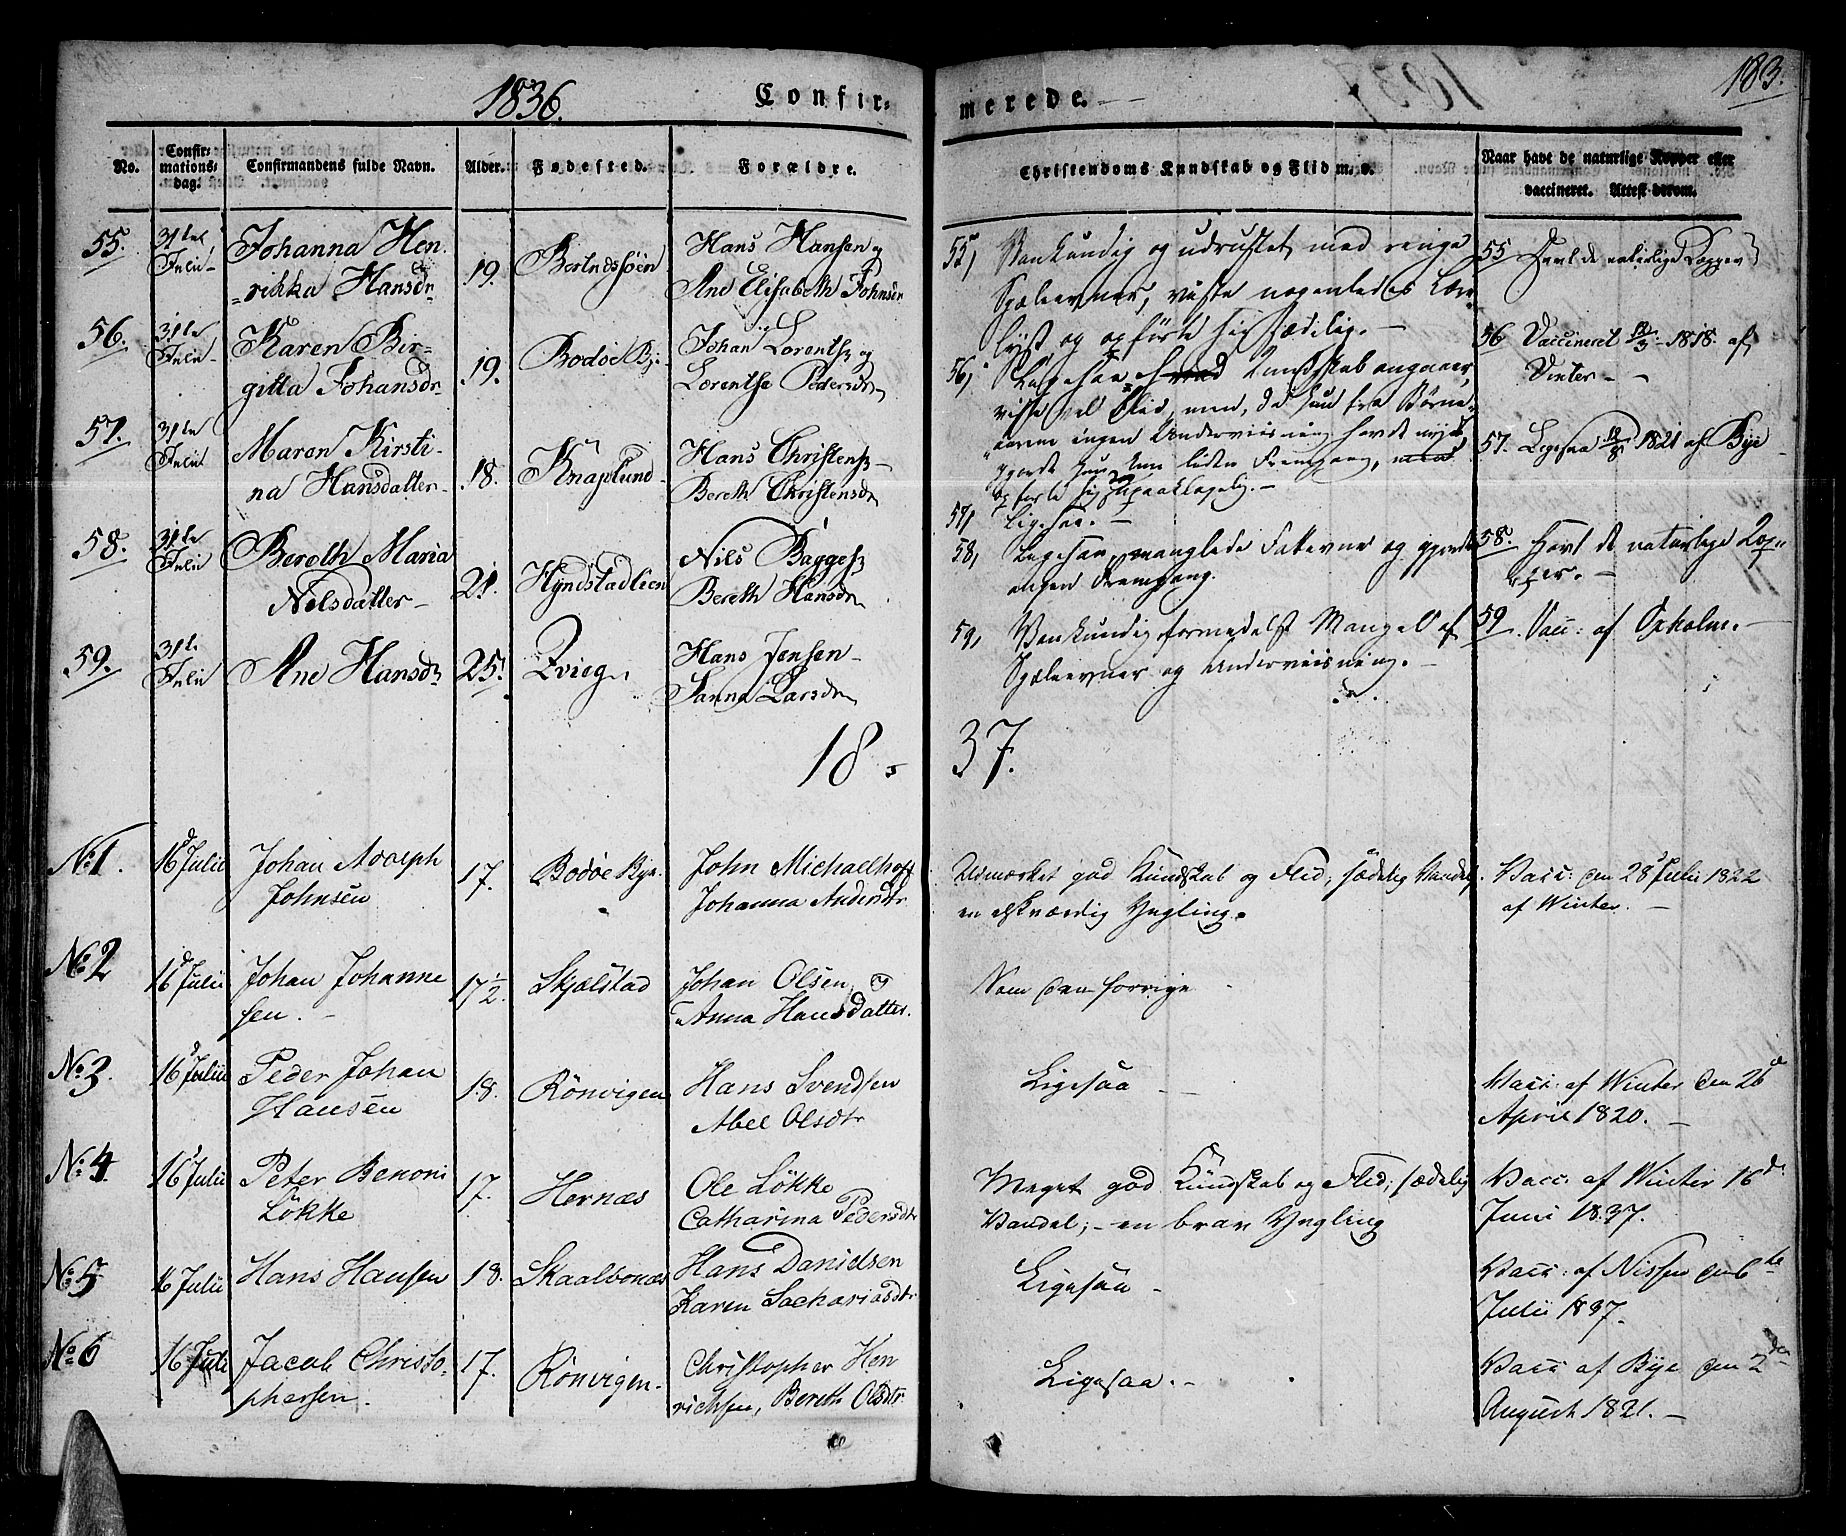 1836.
Confir-
merede.
183.
No.
Confir-
mations-
dag.
Confirmandens fulde Navn.
Alder.
Fødested.
Forældre.
Christendoms Kundskab og Flid m. v.
Naar havt de naturlige Kopper eller
vaccineret. Attest derom.
55.
31te
Julii
Johanna Hen
rikka Hansdr
19.
Hans Hansen og
Ane Elisabeth Johnsdr
55, Vankundig og udrustet med ringe
Sjæleevner, viste nogenledes Lære
lyst og opførte sig sædelig.
55 Havt de naturlige Kopper
56.
31te
Julii
Karen Bir-
gitta Johansdr
19.
Bodöe By
Johan Lorentz og
Lorentse Pedersdr
56, Ligesaa hvad Kundskab angaaer,
viste vel Flid, men, da hun fra Børne-
aarene ingen Underviisning havde nydt,
gjorde hun kun liden Fremgang,
opførte sig upaaklagelig.
56 Vaccineret 1818 af
Winter
57.
31te
Julii
Maren Kirsti-
na Hansdatter
18.
Knaplund
Hans Christens
Bereth Christensdr
57, Ligesaa.
57. Ligesaa 1821 af Bye
58.
31te
Julii
Bereth Maria
Nilsdatter
21.
Hyndstadlien
Nils Bagges
Bereth Hansdr
58, Ligesaa, manglede Fatteevne og gjorde
ingen Fremgang.
58. Havt de naturlige Kop-
per.
59.
31te
Julii
Ane Hansdr
25.
Qvieg
Hans Jensen
Sanna Larsdr
59, Vankundig formedelst Mangel af
Sjæleevner og Underviisning.
59. Vacc: af Oxholm.
18
37.
No. 1.
16d Julii
Johan Adolph
Johnsen
17.
Bodöe Bye
John Michaelhoff
Johanna Andersdr
Udmærket god Kundskab og Flid, sædelig Vandel,
en elskværdig Yngling.
Vacc: den 28d Julii 1822
af Winter.
No. 2
16d Julii
Johan Johanne
sen.
17 1/2.
Skjelstad
Johan Olsen
Anna Hansdatter.
Som den forrige
No. 3.
16d Julii
Peder Johan
Hansen
18.
Rönvigen
Hans Svendsen
Abel Olsdtr
Ligesaa
Vacc: af Winter den 26d
April 1820.
No. 4.
16d Julii
Peter Benoni
Løkke
17.
Hernæs
Ole Løkke
Catharina Pedersdtr
Meget god Kundskab og Flid; sædelig
Vandel; - en brav Yngling
Vacc: af Winter 16d
Juni 1837.
No. 5
16 Julii
Hans Hansen
18.
Skaalbonæs
Hans Danidsen
Karen Sachariasdtr
Ligesaa
Vacc: af Nissen den 6te
Julii 1837.
No. 6
16 Juli
Jacob Christo
phersen.
17.
Rönvigen.
Christopher Hen
richsen, Bereth Olsdtr
Ligesaa.
Vacc af Bye den 2den
August 1821.